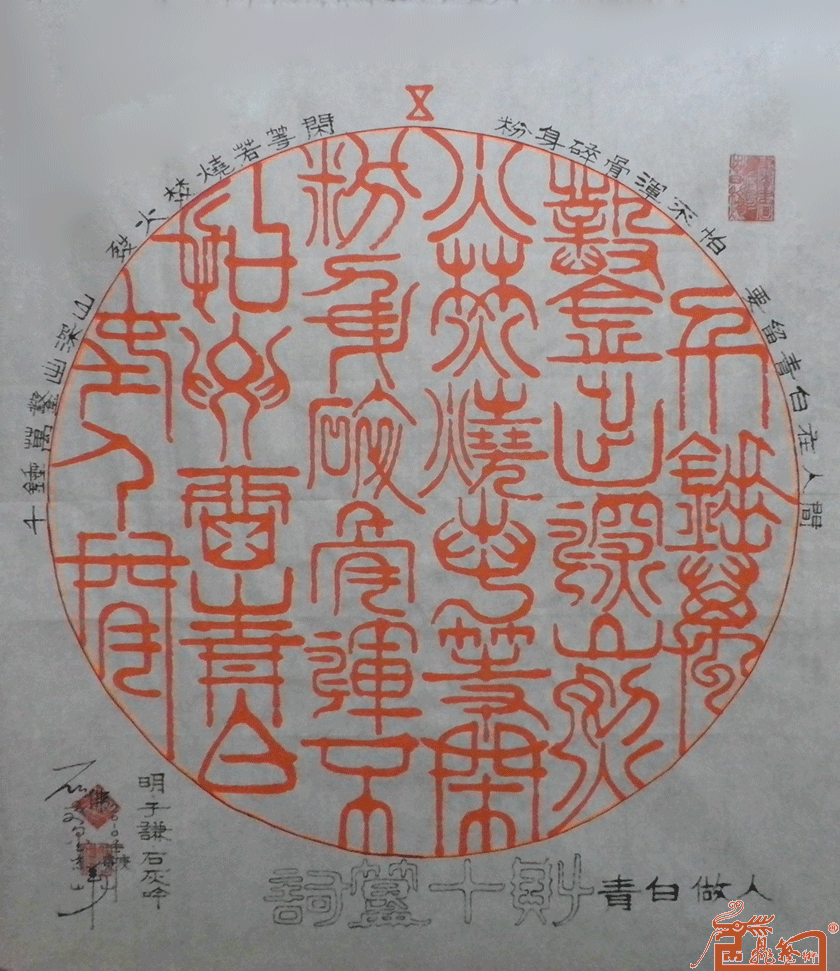 千錘萬鑿出深山
烈火焚燒若等閑
粉身碎骨渾不怕
要留青白在人間
千錘萬
鑿出深山烈
火焚燒若等閑
粉身碎骨渾不
怕要留青白
在人間
青白做人
明于謙石灰吟